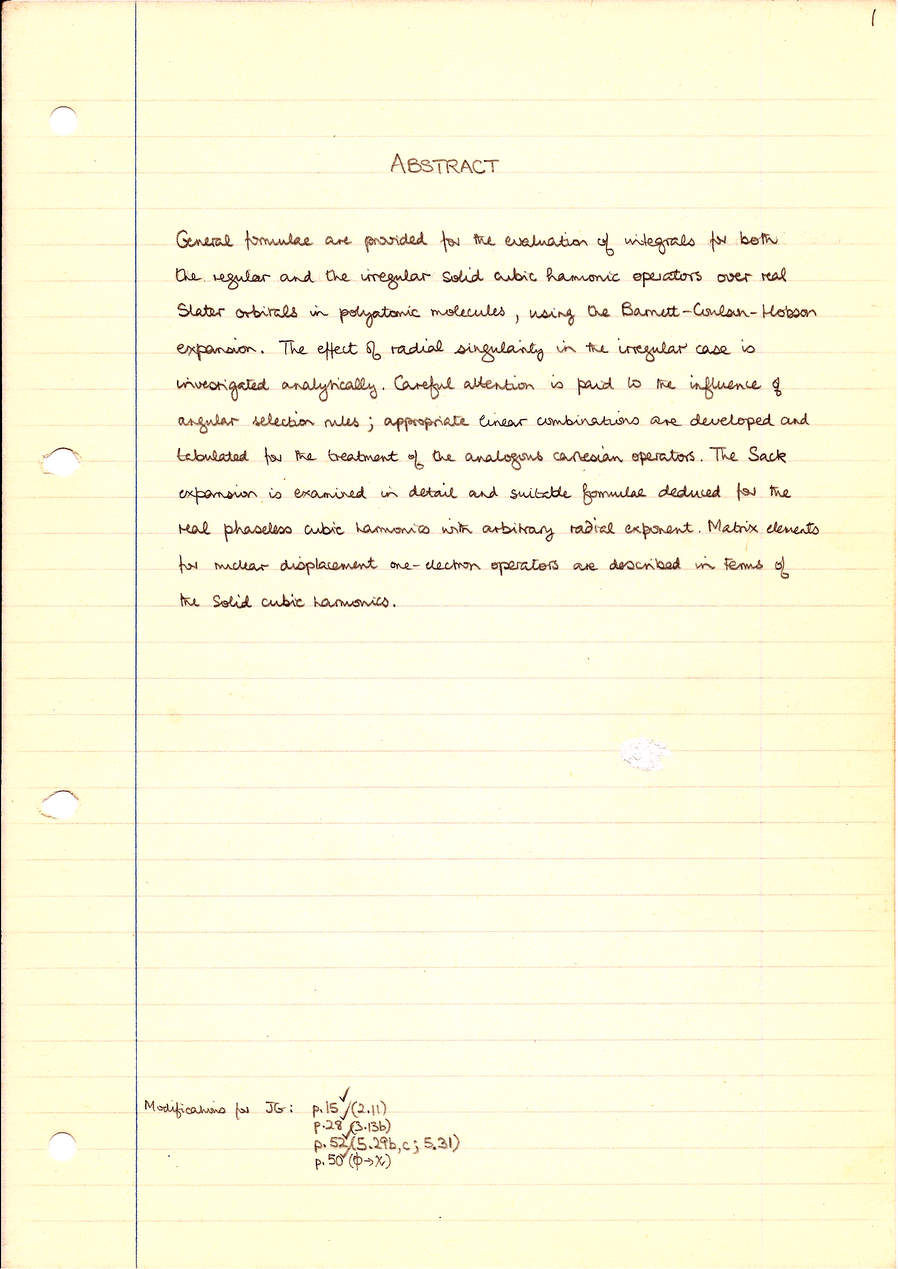 1
ABSTRACT
General formulae are provided for the evaluation of integrals for both
the regular and the irregular solid cubic harmonic operators over real
Slater orbitals in polyatomic molecules, using the Barnett-Coulson-Hobson
expansion. The effect of radial singularity in the irregular case is
investigated analytically. Careful attention is paid to the influence of
angular selection rules; appropriate linear combinations are developed and
tabulated for the treatment of the analogous cartesian operators. The Sack
expansion is examined in detail and suitable formulae deduced for the
real phaseless cubic harmonics with arbitrary radial exponent. Matrix elements
for nuclear displacement one-electron operators are described in terms of
the solid cubic harmonics.
Modifications for JG: p.15 ✓ (2.11)
p.28 ✓ (3.13b)
p.52 ✓ (5.29b,c; 5.31)
p.50 ✓ (φ→χ)